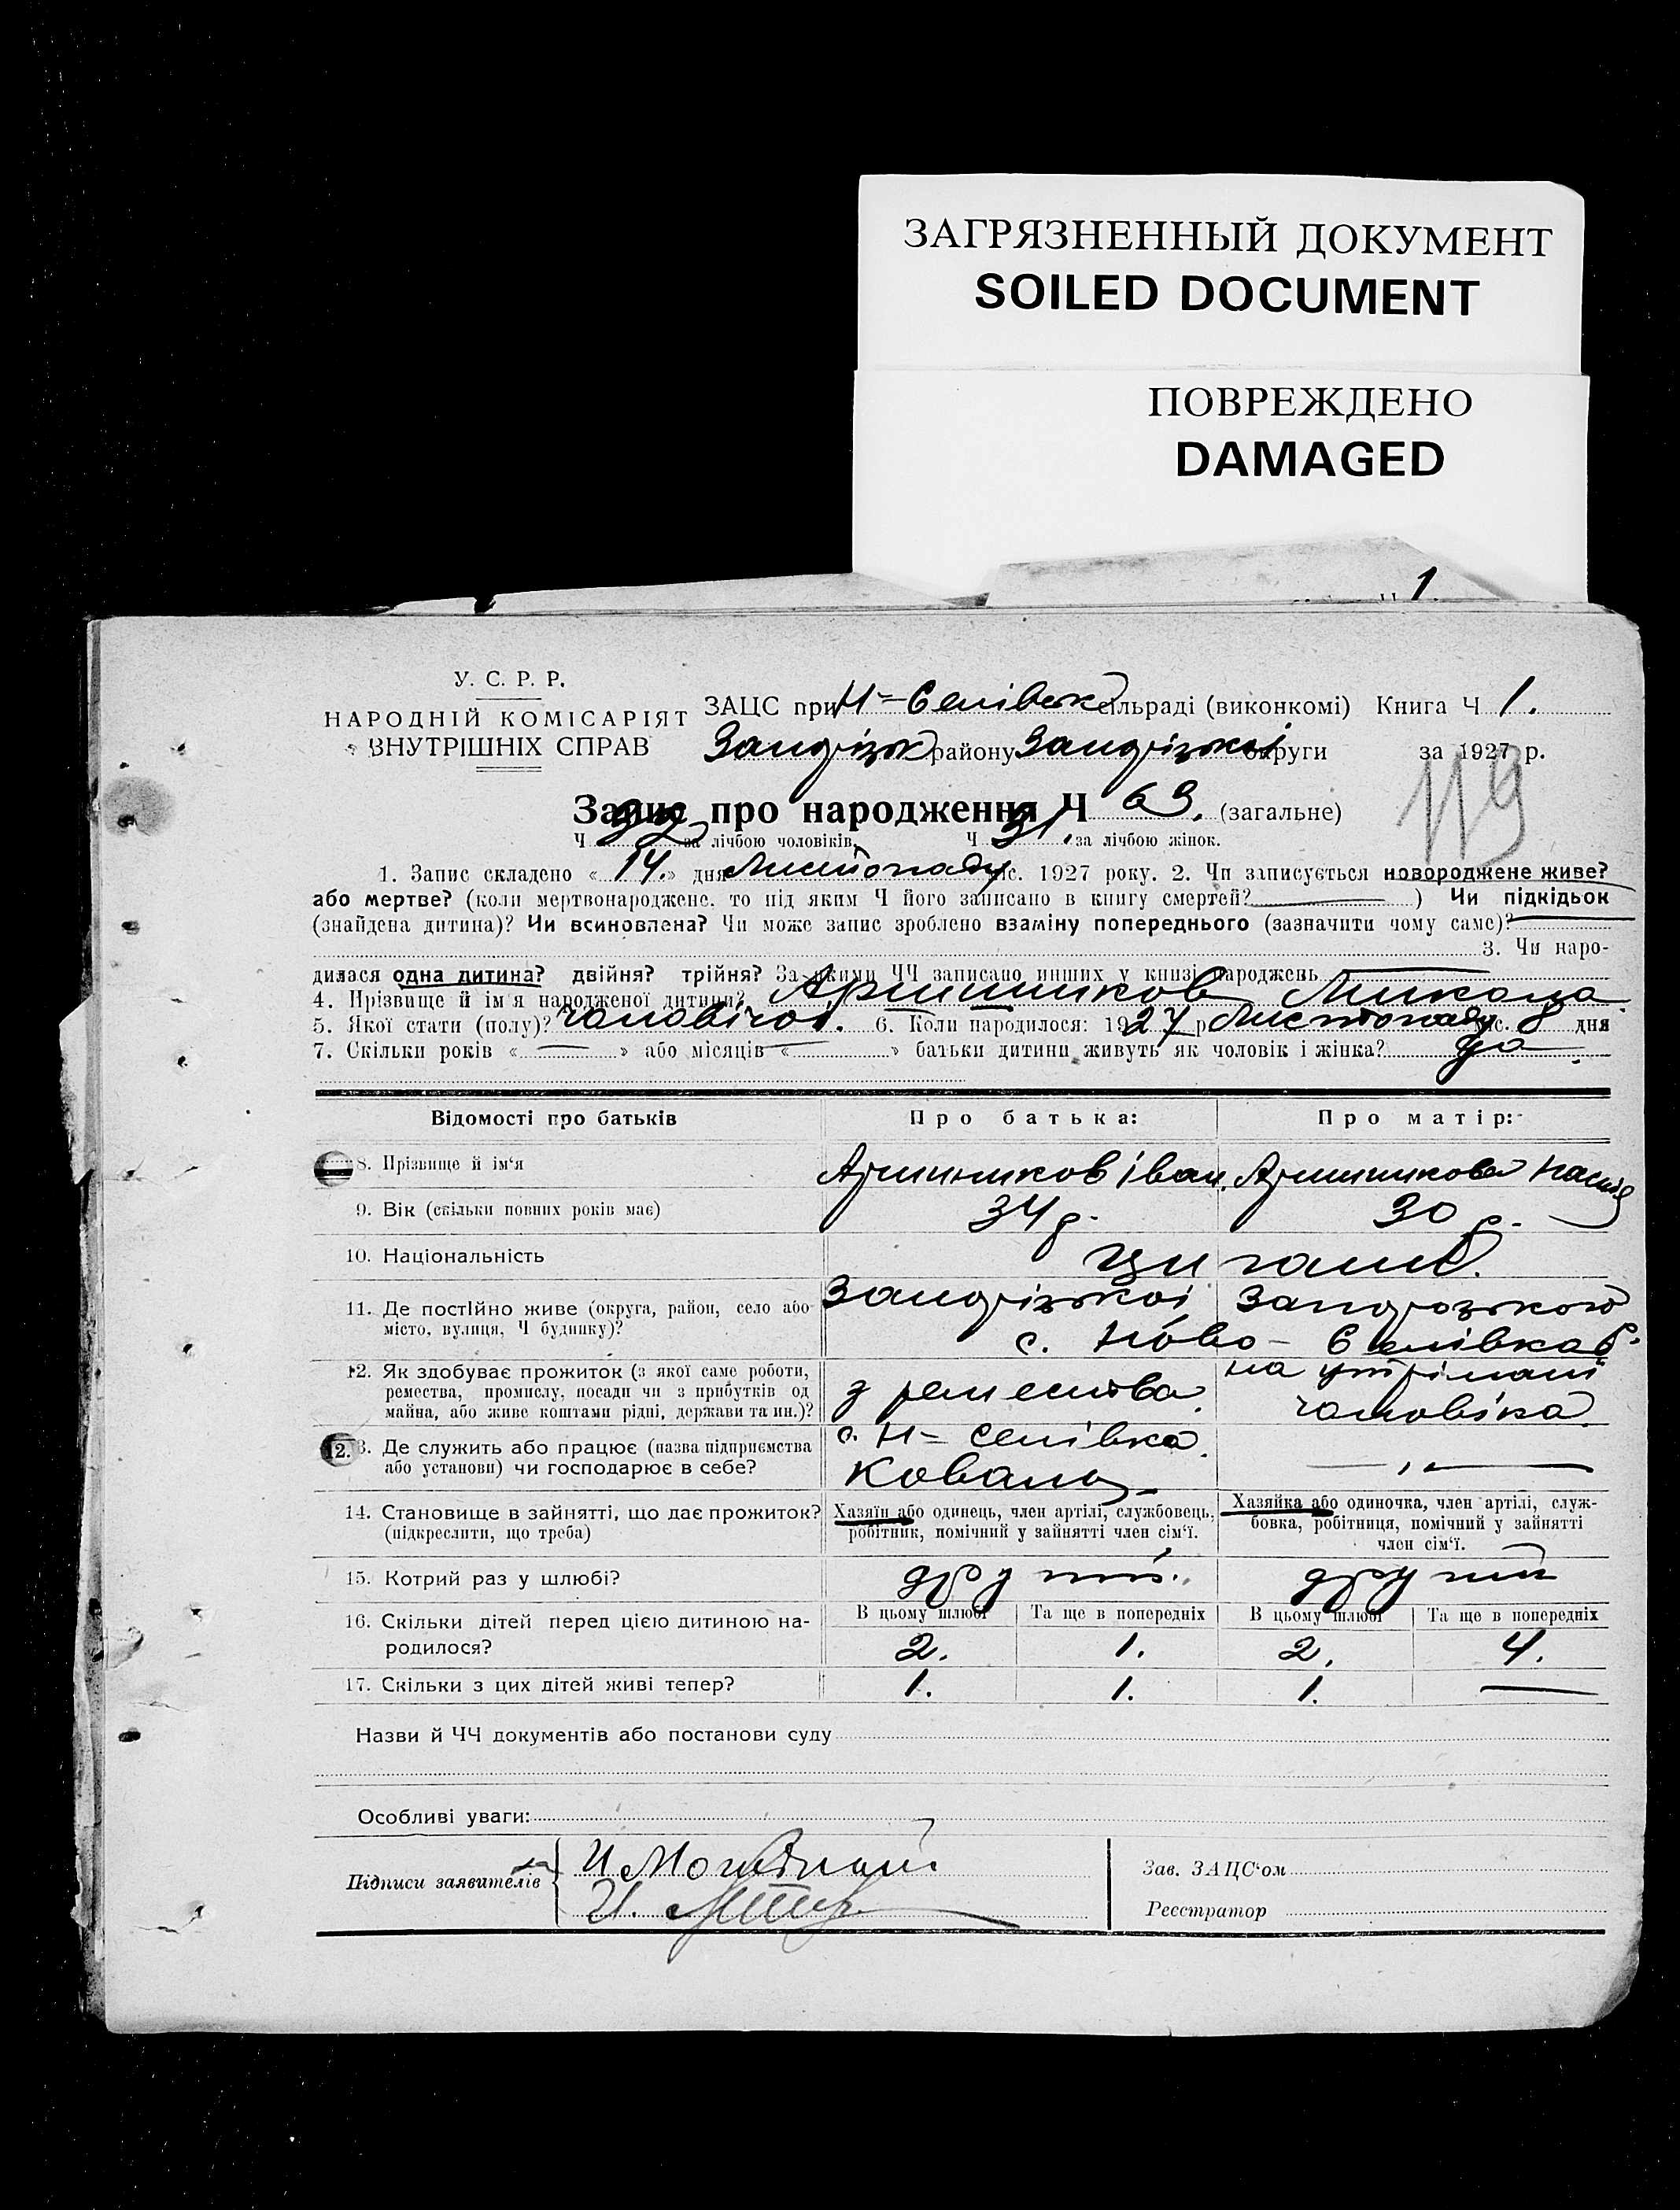 ЗАГРЯЗНЕННЫЙ ДОКУМЕНТ
SOILED DOCUMENT
ПОВРЕЖДЕНО
DAMAGED
1.
У. С. Р. Р.
НАРОДНІЙ КОМІСАРІЯТ
ВНУТРІШНІХ СПРАВ
ЗАЦС при Н-Селівськ сільраді (виконкомі) Книга Ч 1.
району округи за 1927 р.
119
Запис про народження Ч 63. (загальне)
Ч 32 за лічбою чоловіків. Ч 31. за лічбою жінок.
1. Запис складено « 14. » дня Листопаду м-с. 1927 року. 2. Чи записується новороджене живе?
або мертве? (коли мертвонароджене, то під яким Ч його записано в книгу смертей? ) Чи підкідьок
(знайдена дитина)? Чи всиновлена? Чи може запис зроблено взаміну попереднього (зазначити чому саме)?
3. Чи наро-
дилася одна дитина? двійня? трійня? За якими ЧЧ записано инших у книзі народжень
4. Прізвище й ім'я народженої дитини? Аришников Микола
5. Якої стати (полу)? чоловічої. 6. Коли народилося: 1927 р Листопаду м-с. 8 дня
7. Скільки років « — » або місяців « — » батьки дитини живуть як чоловік і жінка? да
Відомості про батьків Про батька: Про матір:
8. Прізвище й ім'я Аришников Іван. Аришникова
9. Вік (скільки повних років має) 34 р. 30 р.
10. Національність цигани.
11. Де постійно живе (округа, район, село або
місто, вулиця, Ч будинку)?
с. Ново-Селівка
12. Як здобуває прожиток (з якої саме роботи,
ремества, промислу, посади чи з прибутків од
майна, або живе коштами рідні, держави та ин.)?
з ремества. на утрімані
чоловіка.
12.
13. Де служить або працює (назва підприємства
або установи) чи господарює в себе?
с. Н-Селівка.
Коваль
14. Становище в зайнятті, що дає прожиток?
(підкреслити, що треба)
Хазяїн або одинець, член артілі, службовець,
робітник, помічний у зайнятті член сім'ї.
Хазяйка або одиночка, член артілі, служ-
бовка, робітниця, помічний у зайнятті
член сім'ї.
15. Котрий раз у шлюбі? другий. другий
16. Скільки дітей перед цією дитиною на-
родилося?
В цьому шлюбі Та ще в попередніх В цьому шлюбі Та ще в попередніх
2. 1. 2. 4.
17. Скільки з цих дітей живі тепер? 1. 1. 1. —
Назви й ЧЧ документів або постанови суду
Особливі уваги:
Підписи заявителів
Зав. ЗАЦС'ом
Реєстратор